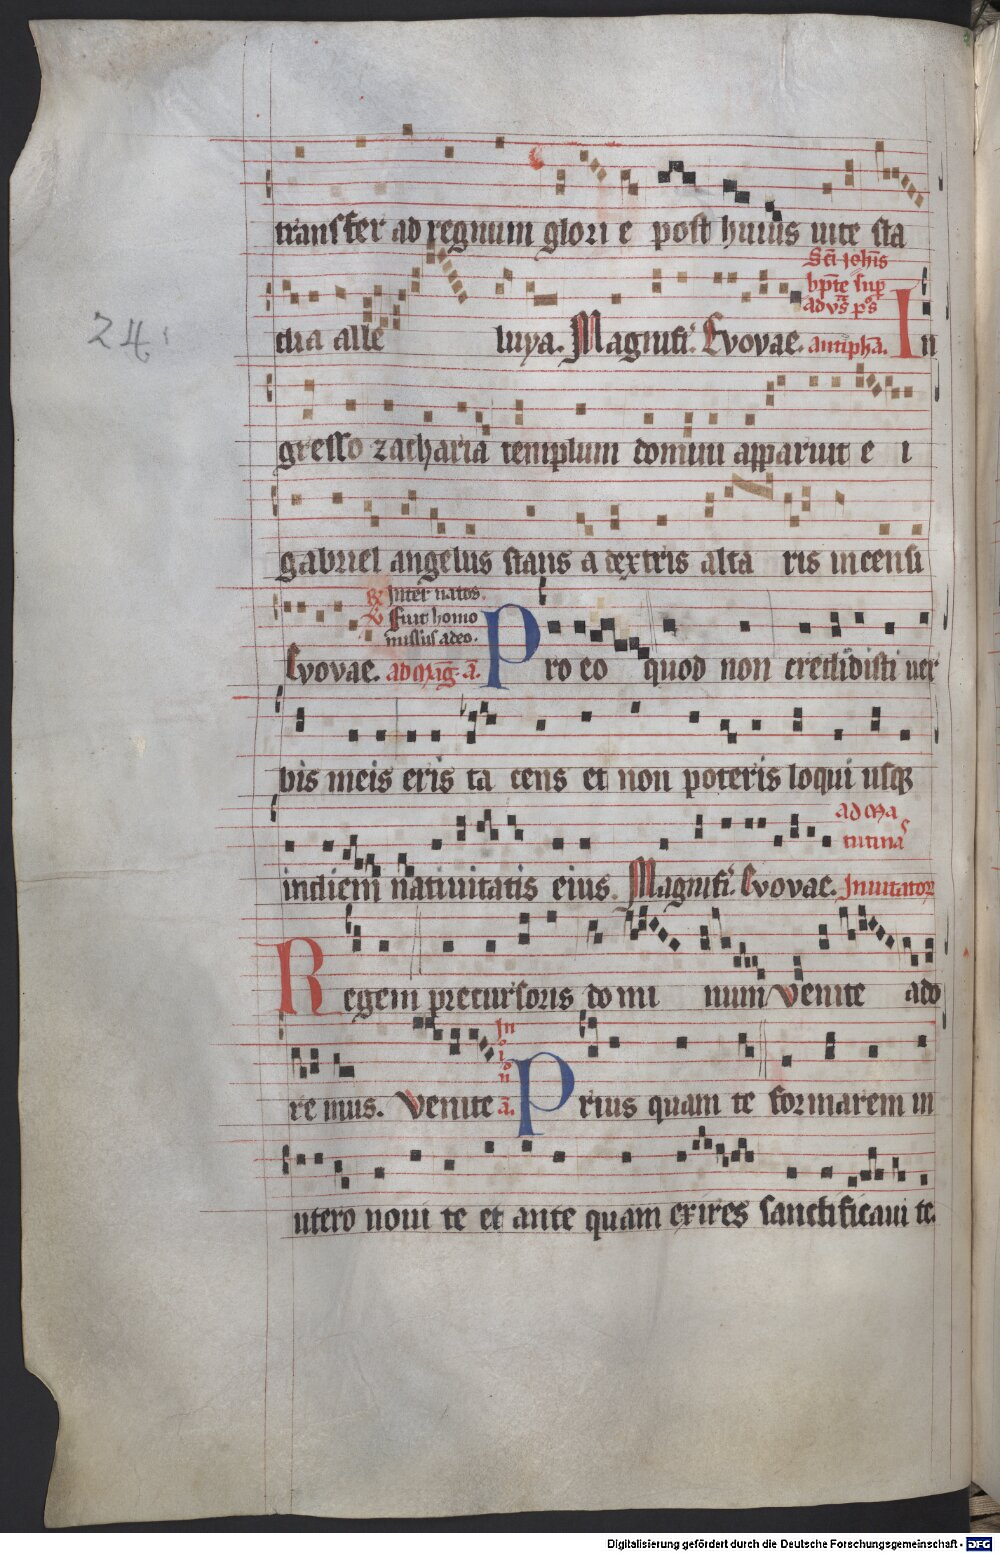 transfer ad regnum glori e post huius uite sta
Sci iohis
bpte sup
adv̄s ps
24
dia alle luya. Magnifi. Evovae. antipha. In
gresso zacharia templum domini apparuit e i
gabriel angelus stans a dextris alta ris incensi
R Inter natos.
V Fuit homo
missus adeo.
Evovae. ad mag. a. Pro eo quod non credidisti ver
bis meis eris ta cens et non poteris loqui usq
ad ma
tutinas
indiem natiuitatis eius. Magnifi. Evovae. Inuitator
Regem precursoris domi num venite ado
In
i
o
n
re mus. Venite a. Prius quam te formarem in
utero noui te et ante quam exires sanctificaui te.
Digitalisierung gefördert durch die Deutsche Forschungsgemeinschaft - DFG